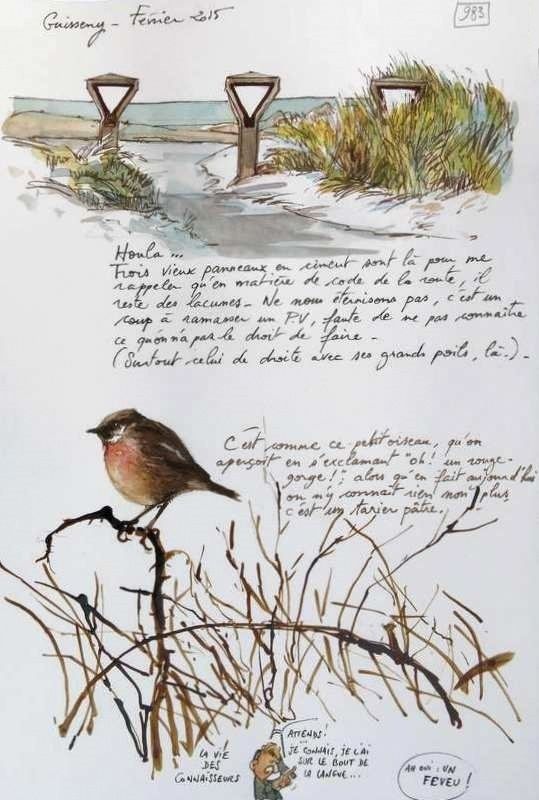 Guisseny - Février 2015
983
Houla ...
Trois vieux panneaux en ciment sont là pour me
rappeler qu'en matière de code de la route, il
reste des lacunes - Ne nous éternisons pas, c'est un
coup à ramasser un PV, faute de ne pas connaître
ce qu'on n'a pas le droit de faire -
(Surtout celui de droite avec ses grands poils, là.) -
C'est comme ce petit oiseau, qu'on
aperçoit en s'exclamant "oh! un rouge-
gorge!", alors qu'en fait aujourd'hui
on n'y connait rien non plus,
c'est un tarier pâtre.
LA VIE
DES
CONNAISSEURS
ATTENDS!
JE CONNAIS, JE L'AI
SUR LE BOUT DE
LA LANGUE...
AH OUI : UN
FEVEU !